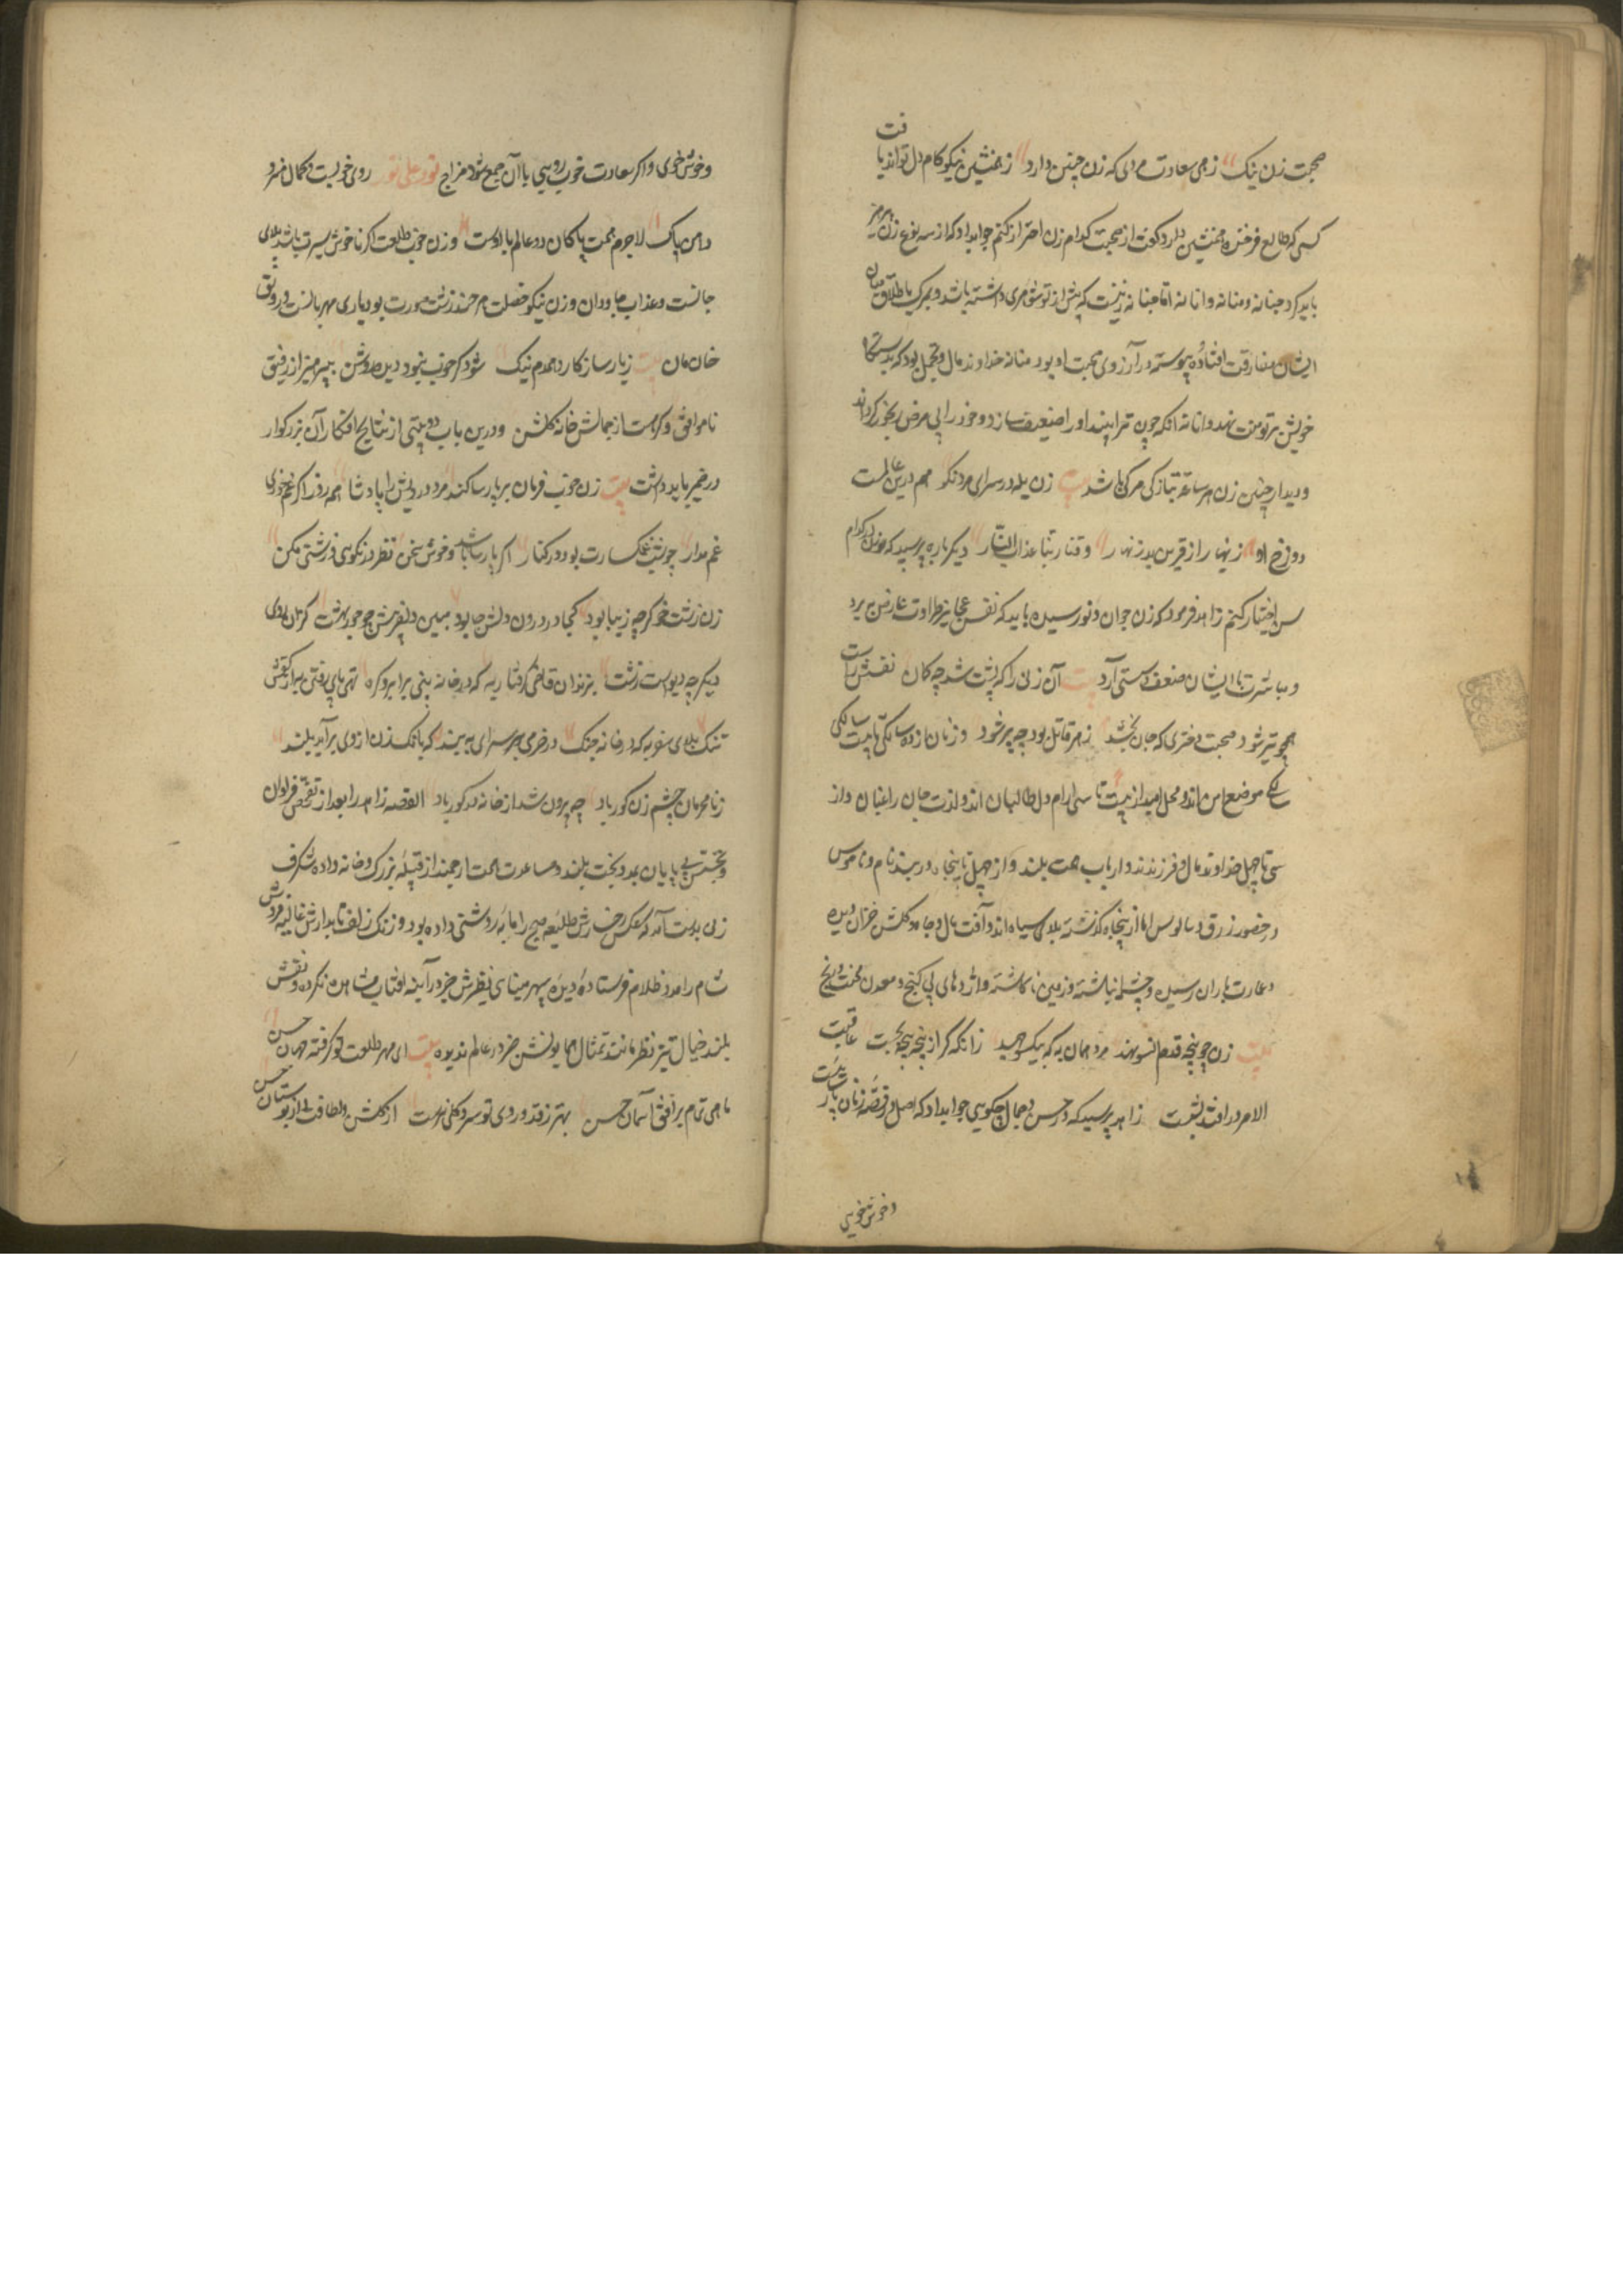 صحبت زن نیک زهی سعادت مردی که زن چنین دارد ز همنشین نیکو کام دل تواند یافت
کسی که طالع فرخنده همنشین دارد و گفت از صحبت کدام زن احتراز کنم جواب داد که از سه نوع زن پرهیز
باید کرد حنانه و منانه و انانه اما حنانه زنیست که پیش از تو شوهری داشته باشد و بمرک یا طلاق میان
ایشان مفارقت افتاده و پیوسته در آرزوی صحبت او بود منانه خداوند مال و تجمل بود که بدستگاه
خویش بر تو منت نهد و انانه آنکه چون ترا بیند آواز ضعیف سازد و خود را بی مرض رنجور گرداند
و دیدار چنین زن هر ساعة بتازگی مرگی باشد بیت زن بد در سرای مرد نکو هم درین عالمست
دوزخ او زینهار از قرین بد زنهار وقنا ربنا عذاب النار دیگر باره پرسید که زنان در کدام
سن اختیار کنم زاهد فرمود که زن جوان و نورسیده باید که نفس عجایز طراوت عارض ببرد
و مباشرت با ایشان ضعف و سستی آرد بیت آن زنی را که پشت شد چو کمان نفسش راست
همچو تیر شود صحبت دختری که جان بخشد زهر قاتل بود چو پیر شود و زنان از ده سالگی تا بیست سالگی
موضع امن اند و محل امید از بیست تا سی آرام دل طالبان اند و لذت جان راغبان و از
سی تا چهل خداوند مال و فرزندند و ارباب همت بلند و از چهل تا پنجاه در بند نام و ناموس
و حضور زرق و سالوس اما از پنجاه گذشته بلای سیاه اند و آفت مال و جاه و گلشن خزان دیده
و عمارت باران رسیده و چشمه انباشته و زمین ناکاشته و اژدهای بی گنج و معدن محنت و رنج
بیت زن چو پنجه قدم انسو نهد مرد همان به که بیکسو جهد زانکه گر از پنجه پنجه بجست عاقبت
الامر در افتد بشست زاهد پرسید که در حسن و جمال چگویی جواب داد که اصل در قصه زنان پارسائیست
و خوش خویی
و خوش خوی و اگر سعادت خوب رویی با آن جمع شود مزاج نور علی نور روی خوبست و کمال هنر و
دامن پاک لاجرم همت پاکان دو عالم با اوست و زن خوب طلعت اگر ناخوش سیرت باشد بلای
جانست و عذاب جاودان و زن نیکو خصلت هر چند زشت صورت بود یاری مهربانست و رونق
خان و مان بیت ز یار سازکار و همدم نیک شود گر خوب نبود دیده روشن بپرهیز از رفیق
ناموافق و گر هست از جمالش خانه گلشن و درین باب دو بیتی از نتایج افکار آن بزرگوار
در ضمیر باید داشت بیت زن خوب فرمان بر پارسا کند مرد درویش را پادشا همه روز اگر غم خوری
غم مدار چو شب غمگسارت بود در کنار اگر پارسا باشد و خوش سخن نظر در نکویی و زشتی مکن
زن زشت خو گرچه زیبا بود کجا در درون دلش جا بود ببین دلفریبش چو حور بهشت کزان روی
دیگر چو دیوست زشت بزندان قاضی گرفتار به که در خانه بینی بر ابرو گره تهی پای رفتن به از کفش
تنگ بلای سفر به که در خانه جنگ در خرمی بر سرای ببند که بانگ زن از وی برآید بلند
ز نامحرمان چشم زن کور باد چو بیرون شد از خانه در گور باد القصه زاهد را بعد از تفحص فراوان
و تجسس بی پایان بمدد بخت بلند و مساعدت همت ارجمند از قبیله بزرگ و خانواده شگرف
زنی بدست آمد که عکس رخسارش طلیعه صبح را مایه روشنی داده بود و رنگ زلف تابدارش غالیه فروش
شام را مدد ظلام فرستاده دیده سپهر مینای نظیرش جز در آینه آفتاب مشاهده نکرده و نقش
بلند خیال تیز نظر مانند تمثال همایونش جز در عالم ندیده بیت ای مهر طلعت تو گرفته جهان حسن
ماهی تمام بر افق آسمان حسن بهتر ز قد و روی تو سرو و گلی نرست از گلشن لطافت و از بوستان حسن